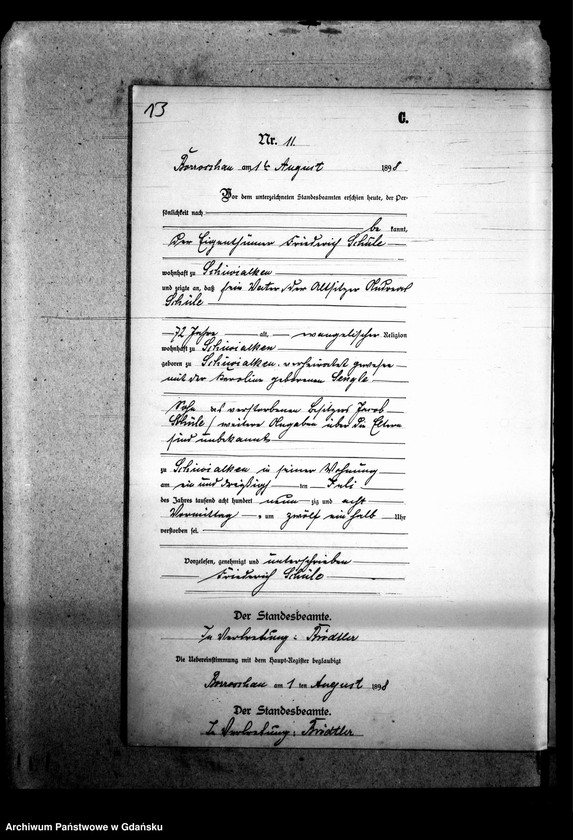 13
C.
Nr. 11.
Borroschau am 1t August 1898
Vor dem unterzeichneten Standesbeamten erschien heute, der Per-
sönlichkeit nach
be kannt,
der Eigenthümer Friedrich Schüle
wohnhaft zu Schiwialken
und zeigte an, daß sein Vater, der Altsitzer Andreas
Schüle
72 Jahre alt, evangelischer Religion
wohnhaft zu Schiwialken
geboren zu Schiwialken, verheiratet gewesen
mit der Karoline geborenen Sengle
Sohn des verstorbenen Besitzers Jacob
Schüle / weitere Angaben über die Eltern
sind unbekannt
zu Schiwialken in seiner Wohnung
am ein und dreißigsten Juli
des Jahres tausend acht hundert neun zig und acht
Vormittag um zwölf ein halb Uhr
verstorben sei.
Vorgelesen, genehmigt und unterschrieben
Friederich Schüle
Der Standesbeamte.
In Vertretung:
Die Uebereinstimmung mit dem Haupt-Register beglaubigt
Borroschau am 1 ten August 1898
Der Standesbeamte.
In Vertretung:
Archiwum Państwowe w Gdańsku